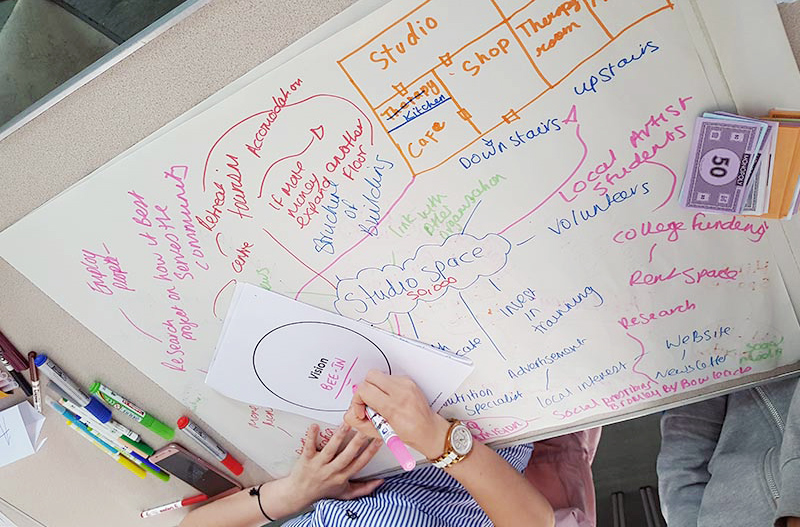 Studio
Therapy
Kitchen
Cafe
Shop
Therapy
room
upstairs
Downstairs
Accomodation
Retreat
tourism
centre
if more
money
expand another
Floor
Structure
of
Building
Link with
organisation
Local Artist
Students
Volunteers
College Funding
Rent Space
Research
Website
Newsletter
Employ
people
Research on how it Best
project Serves the
community
Studio Space
50,000
Invest
in
Training
Advertisement
local interest
Specialist
Social
Bromley By Bow
Vision
BEE-IN
50
MONOPOLY